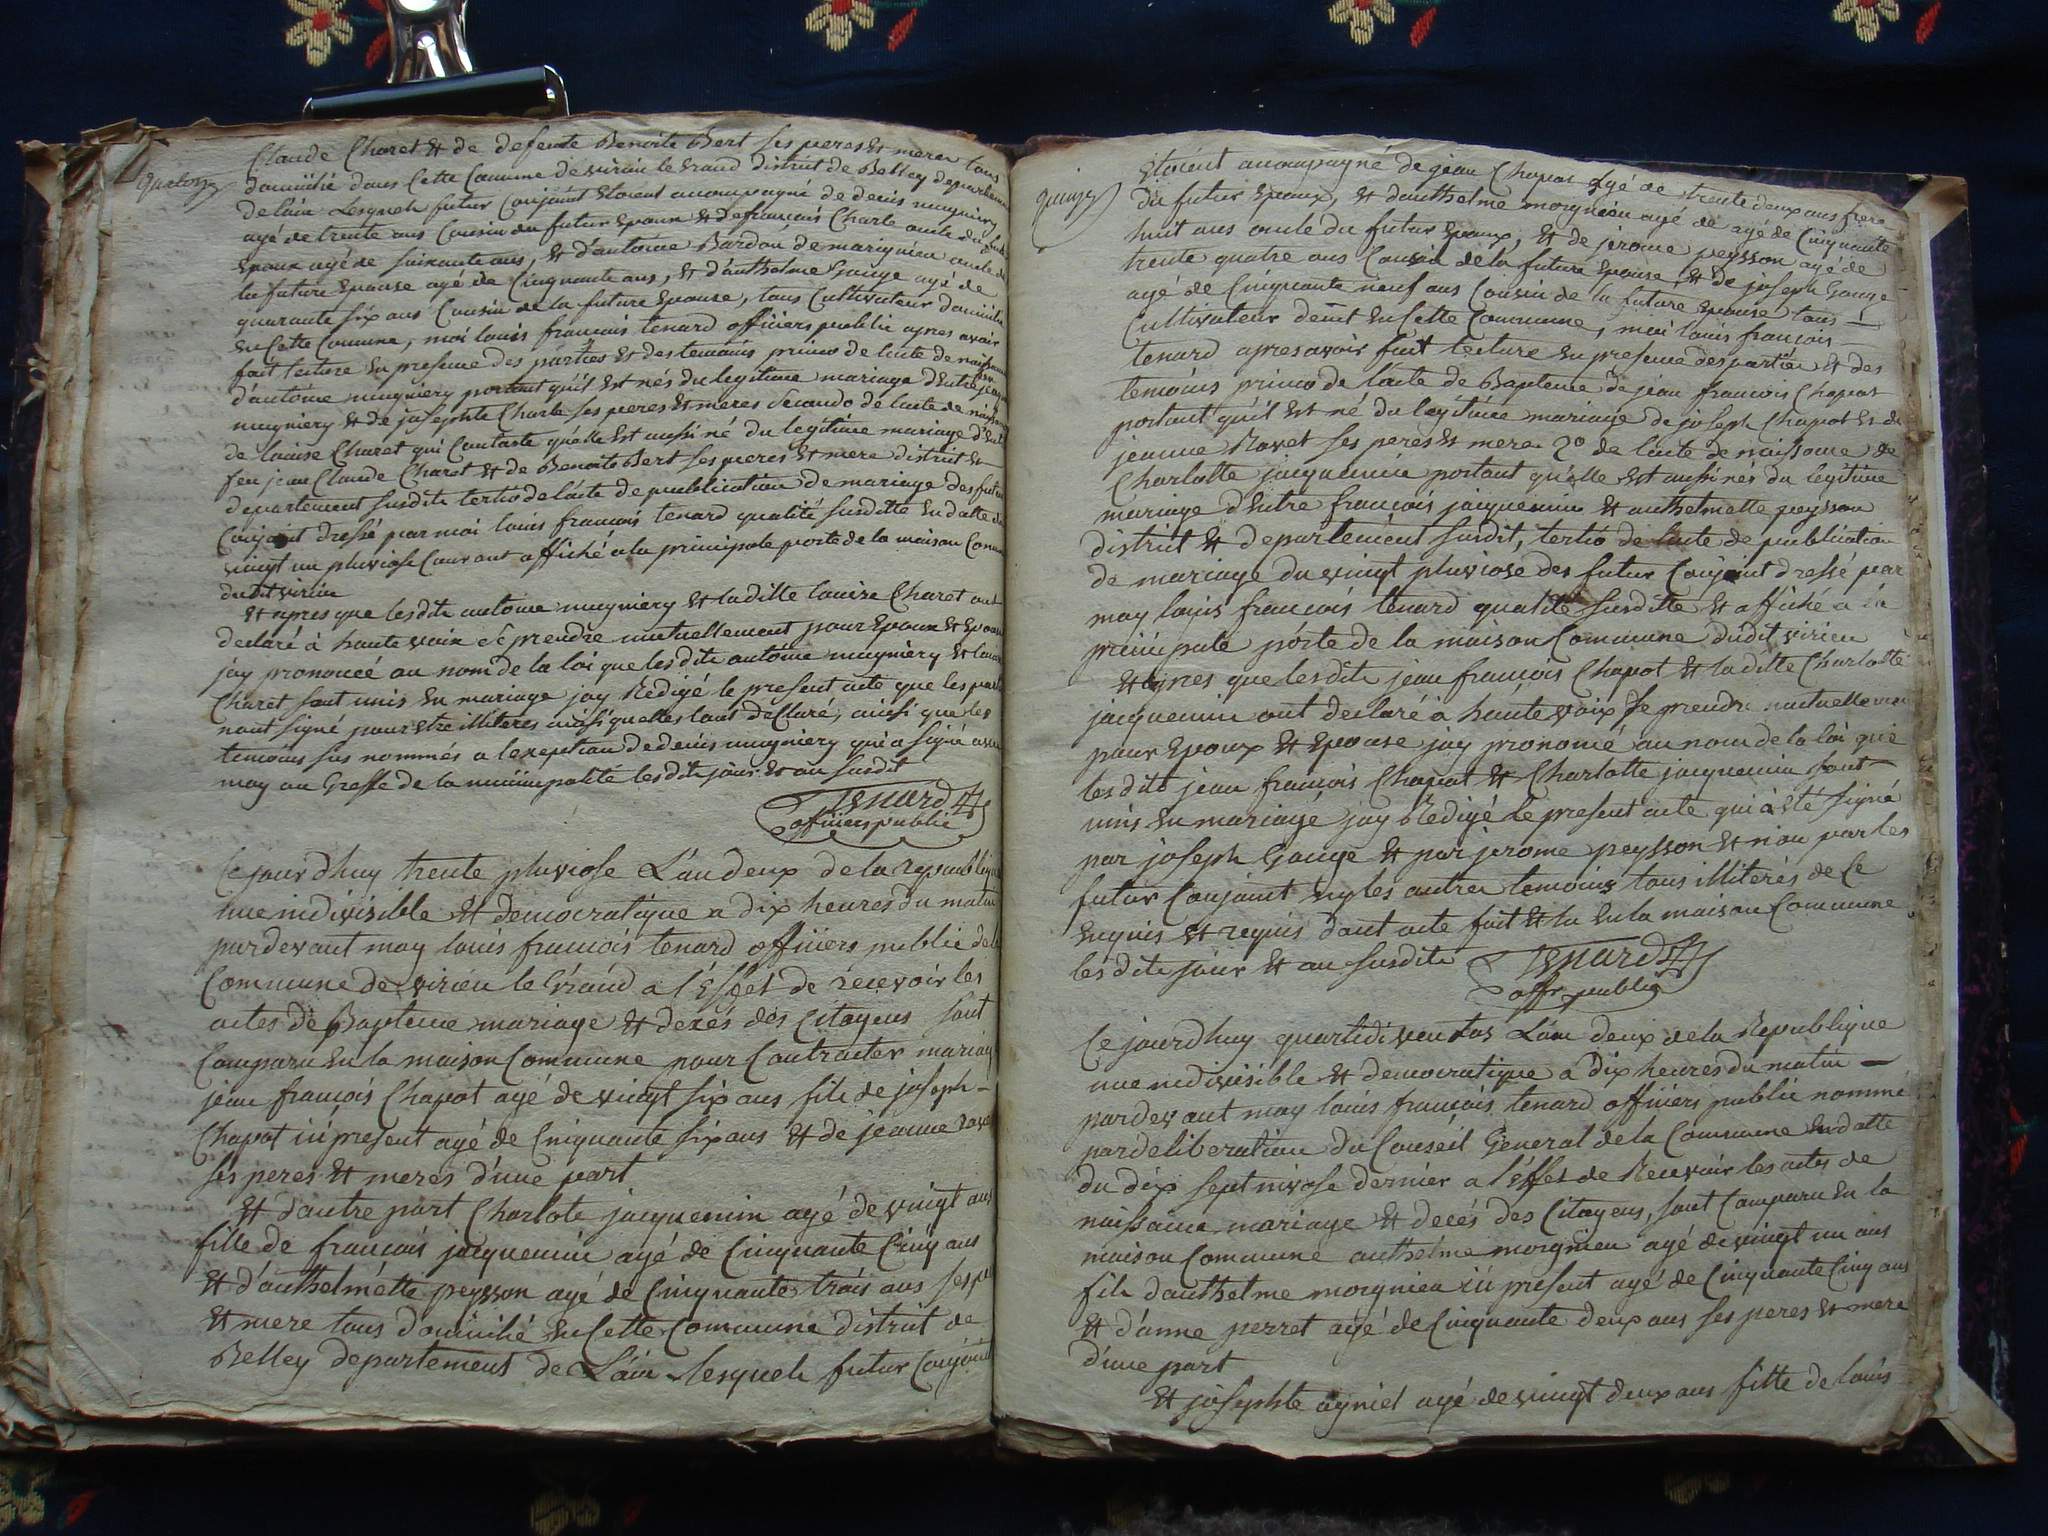 quatorze
Claude Charet & de defeute Benoite Bert ses peres et meres tous
domicilié dans Cette Comune de virieu le Grand district de Belley departement
de lain Lesquels futur Conjoint Etoient accompagné de denis mugniery
agé de trente ans Cousin du futur Epoux & de francois Charle oncle du
Epoux agé de soixante ans, & d'antoine Bardon de marignieu oncle de
la future Epouse agé de Cinquante ans, & d'anthelme Gouge agé de
quarante six ans Cousin de la future Epouse, tous Cultivateur domicilié
en Cette Comune, moi louis francois tenard officiers public apres avoir
fait lecture en presence des parties et des temoins primo de lacte de naissance
d'antoine mugniery portant quil est nés du legitime mariage d'Entre
mugniery & de josephte Charle ses peres et meres Secundo de lacte de naissance
de louise Charet qui Constate quelle est aussi né du legitime mariage d'Entre
feu jean Claude Charet & de Benoite Bert ses peres et mere district et
departement susdite tertio de lacte de publication de mariage des futur
Conjoint dressé par moi louis francois tenard qualité susditte en datte du
vingt un pluviose Courant affiché a la principale porte de la maison Commune
dudit virieu
& apres que lesdite antoine mugniery & la ditte louise Charet ont
declaré à haute voix se prendre mutuellement pour Epoux & Epouse
jay prononcé au nom de la loi que lesdite antoine mugniery & louise
Charet sont unis en mariage jay Redigé le present acte que les parties
nont signé pour etre illiteres ainsi quelles lont declaré, ainsi que les
temoins sus nommés a lexeption de denis mugniery qui a signé avec
moy au Greffe de la municipalité lesdite jour & an susdit
Tenard
officiers public
Ce jourdhuy trente pluviose L'an deux de la republique
une indivisible & democratique a dix heures du matin
pardevant moy louis francois tenard officiers public de la
Commune de virieu le Grand a l'Effet de recevoir les
actes de Bapteme mariage & decés des Citoyens sont
Comparu en la maison Commune pour Contracter mariage
jean francois Chapot agé de vingt six ans fils de joseph
Chapot ici present agé de Cinquante six ans & de jeanne ravet
ses peres & meres d'une part
& d'autre part Charlote jacquemin agé de vingt ans
fille de francois jacquemin agé de Cinquante Cinq ans
& d'anthelmette peysson agé de Cinquante trois ans ses pere
& mere tous domicilié en Cette Commune district de
Belley departement de L'ain lesquels futur Conjoint
quinze
Etoient accompagné de jean Chapot agé de trente deux ans frere
du futur Epoux, & danthelme morgnieu agé de agé de Cinquante
huit ans oncle du futur Epoux, & de jerome peysson agé de
trente quatre ans Cousin de la future Epouse & de joseph Gouge
agé de Cinquante neuf ans Cousin de la future Epouse tous
Cultivateur demt en Cette Commune, moi louis francois
tenard apres avoir fait lecture en presence des parties & des
temoins primo de lacte de Bapteme de jean francois Chapot
portant quil est né du legitime mariage de joseph Chapot et de
jeanne Ravet ses peres et mere 2o de lacte de naissance de
Charlotte jacquemin portant quelle est aussi nés du legitime
mariage d'Entre francois jacquemin & anthelmette peysson
district & departement susdit, tertio de lacte de publication
de mariage du vingt pluviose des futur Conjoint dressé par
moy louis francois tenard qualité susditte & affiché a la
principale porte de la maison Commune dudit virieu
& apres que lesdite jean francois Chapot & la ditte Charlotte
jacquemin ont declaré à haute voix se prendre mutuellement
pour Epoux & Epouse jay prononcé au nom de la loi que
lesdits jean francois Chapot & Charlotte jacquemin sont
unis en mariage jay Redigé le present acte qui à été signé
par joseph Gouge & par jerome peysson & non par les
futur Conjoint ny les autres temoins tous illiterés de Ce
enquis & requis dont acte fait & lu en la maison Commune
lesdite jour & an susdite
Tenard
offr public
Ce jourdhuy quartidi ventos L'an deux de la Republique
une indivisible & democratique a dix heures du matin
pardevant moy louis francois tenard officiers public nommé
par deliberation du Conseil General de la Commune en datte
du dix sept nivose dernier a l'effet de Recevoir les actes de
naissance mariage & decés des Citoyens, sont Comparu en la
maison Commune anthelme morgnieu agé de vingt un ans
fils danthelme morgnieu ici present agé de Cinquante Cinq ans
& d'anne perret agé de Cinquante deux ans ses peres et mere
d'une part
& josephte agniel agé de vingt deux ans fille de louis